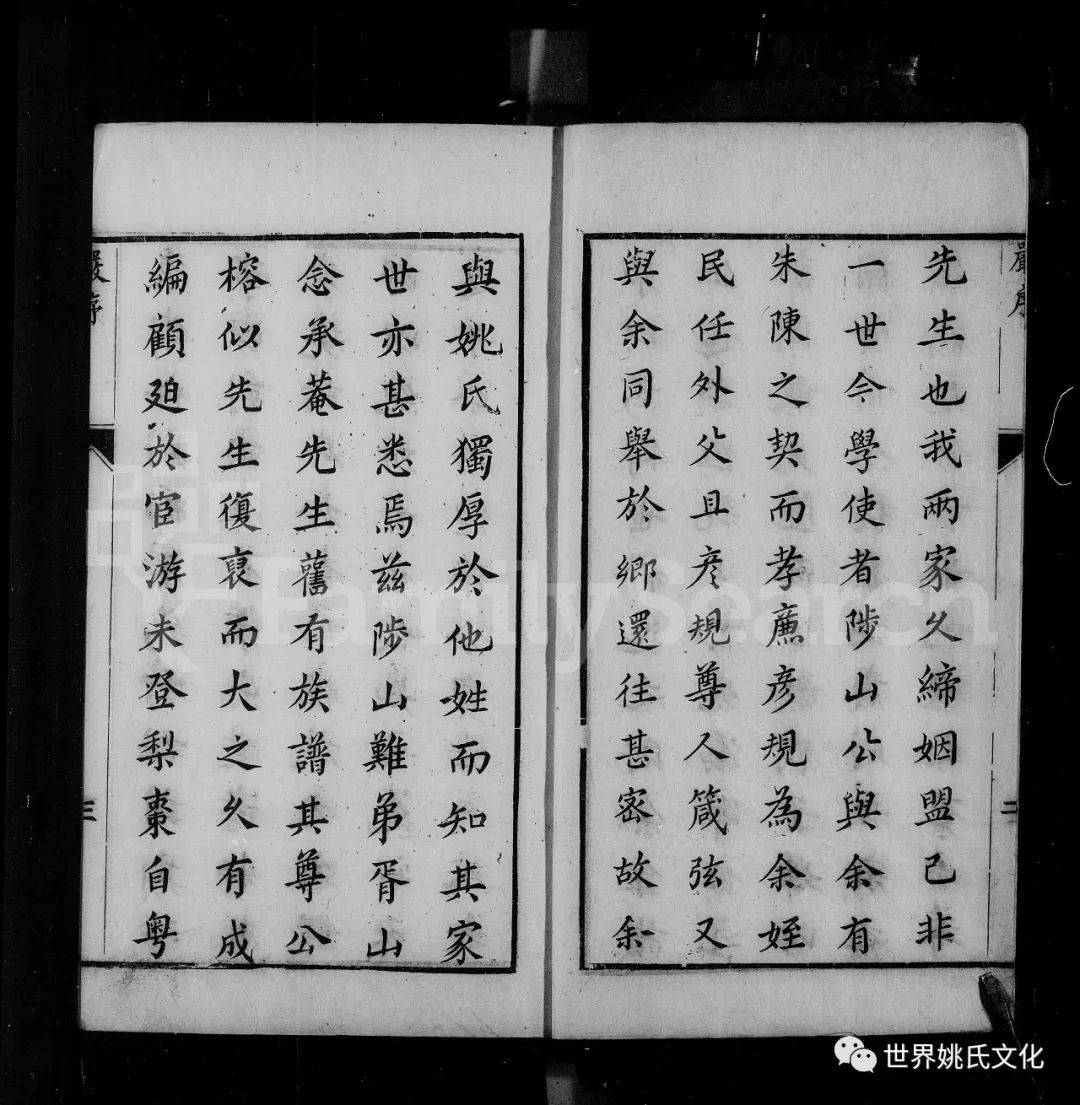 嚴序
二
先生也我兩家久締姻盟已非
一世今學使者陟山公與余有
朱陳之契而孝廉彥規為余姪
民任外父且彥規尊人箴弦又
與余同舉於鄉還往甚密故余
與姚氏獨厚於他姓而知其家
世亦甚悉焉茲陟山難弟胥山
念承菴先生舊有族譜其尊公
榕似先生復裒而大之久有成
編顧廹於宦游未登梨棗自粤
嚴序
三
FamilySearch
世界姚氏文化